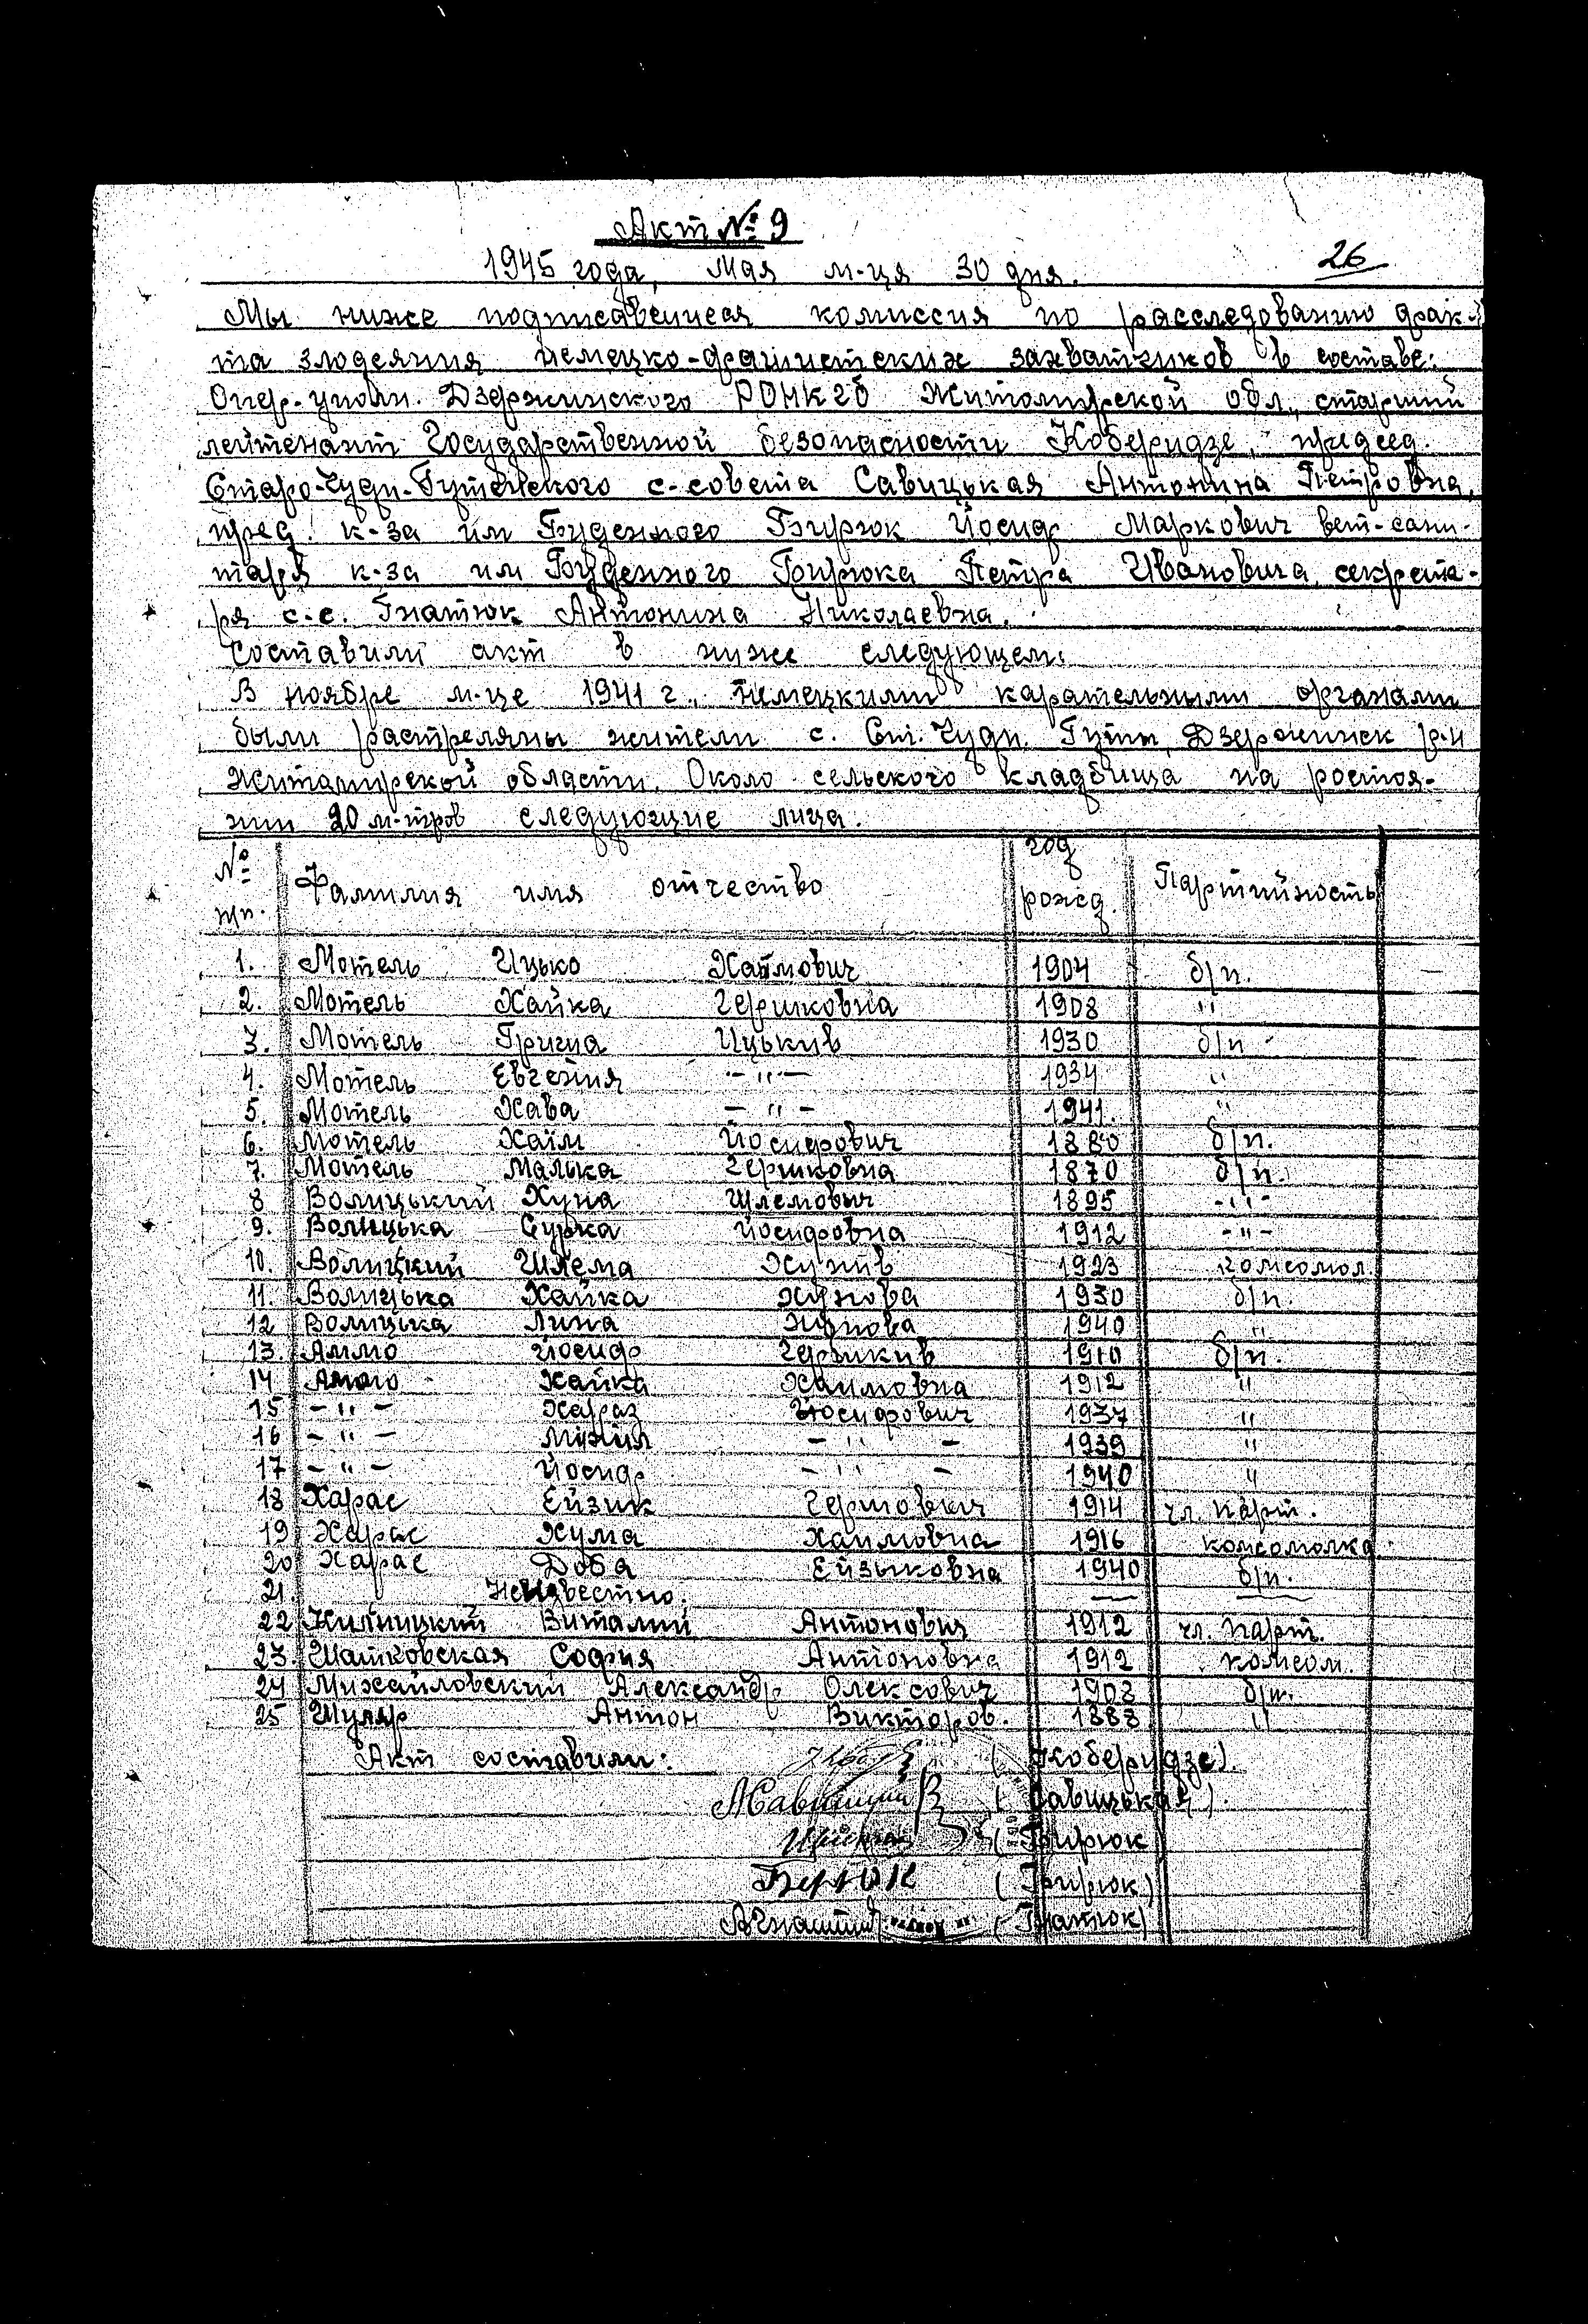 Акт № 9
26
1945 года, Мая м-ця 30 дня.
Мы ниже подписавшиеся комиссия по расследованию фак-
та злодеяния немецко-фашистских захватчиков в составе:
Опер-уполн. Дзержинского РОНКГБ Житомирской обл., старший
лейтенант Государственной безопасности Коберидзе, председ.
Старо-Чудн-Гутенского с-совета Савицькая Антонина Петровна,
пред. к-за им Буденного Бирюк Йосиф Маркович вет-сани-
таря к-за им Буденного Бирюка Петра Ивановича, секрета-
ря с.с. Гнатюк Антонина Николаевна.
Составили акт в ниже следующем:
В ноябре м-це 1941 г., немецкими карательными органами
были растреляны жители с. Ст. Чудн. Гуты, Дзержинск р-н
Житомирской области. Около сельского кладбища на ростоя-
нии 20 м-тров следующие лица.
№ пп. Фамилия имя отчество год рожд. Партийность
1. Мотель Ицько Хаймович 1904 б/п.
2. Мотель Хайка Гершковна 1908 "
3. Мотель Гриша Ицькив 1930 б/п
4. Мотель Евгения -"- 1934 "
5. Мотель Хава -"- 1941. "
6. Мотель Хаїм Йосифович 1880 б/п.
7. Мотель Малька Гершковна 1870 б/п.
8 Волицький Хуна Шлемович 1895 -"-
9. Волицька Сурка Йосифовна 1912 -"-
10. Волицкий Шлема Хунив 1923 комсомол.
11. Волицька Хайка Хунова 1930 б/п.
12 Волицька Лиза Хунова 1940 "
13. Аммо Йосиф Гершкив 1910 б/п.
14 Аммо Хайка Хаимовна 1912 "
15 -"- Хараз Йосифович 1937 "
16 -"- Михил -"- 1939 "
17 -"- Йосиф -"- 1940 "
18 Харас Ейзик Гершович 1914 чл. парт.
19 Харас Хума Хаимовна 1916 комсомолка
20 Харас Доба Ейзыковна 1940 б/п.
21. Неизвестно. — —
22 Виталий Антонович 1912 чл. парт.
23. Шатковская София Антоновна 1912 комсом.
24 Михайловский Александр Олексович 1908 б/п.
25 Шуляр Антон Викторов. 1888 "
Акт составили: (Коберидзе).
(Савицькая).
(Бирюк)
Берюк (Бирюк)
АГнатюк (Гнатюк)